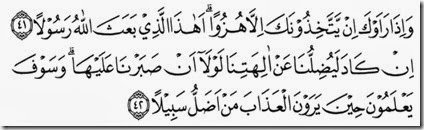 وَاِذَا رَاَوْكَ اِنْ يَّتَّخِذُوْنَكَ اِلَّا هُزُوًاۗ اَهٰذَا الَّذِيْ بَعَثَ اللّٰهُ رَسُوْلًا ٤١
اِنْ كَادَ لَيُضِلُّنَا عَنْ اٰلِهَتِنَا لَوْلَآ اَنْ صَبَرْنَا عَلَيْهَاۗ وَسَوْفَ
يَعْلَمُوْنَ حِيْنَ يَرَوْنَ الْعَذَابَ مَنْ اَضَلُّ سَبِيْلًا ٤٢